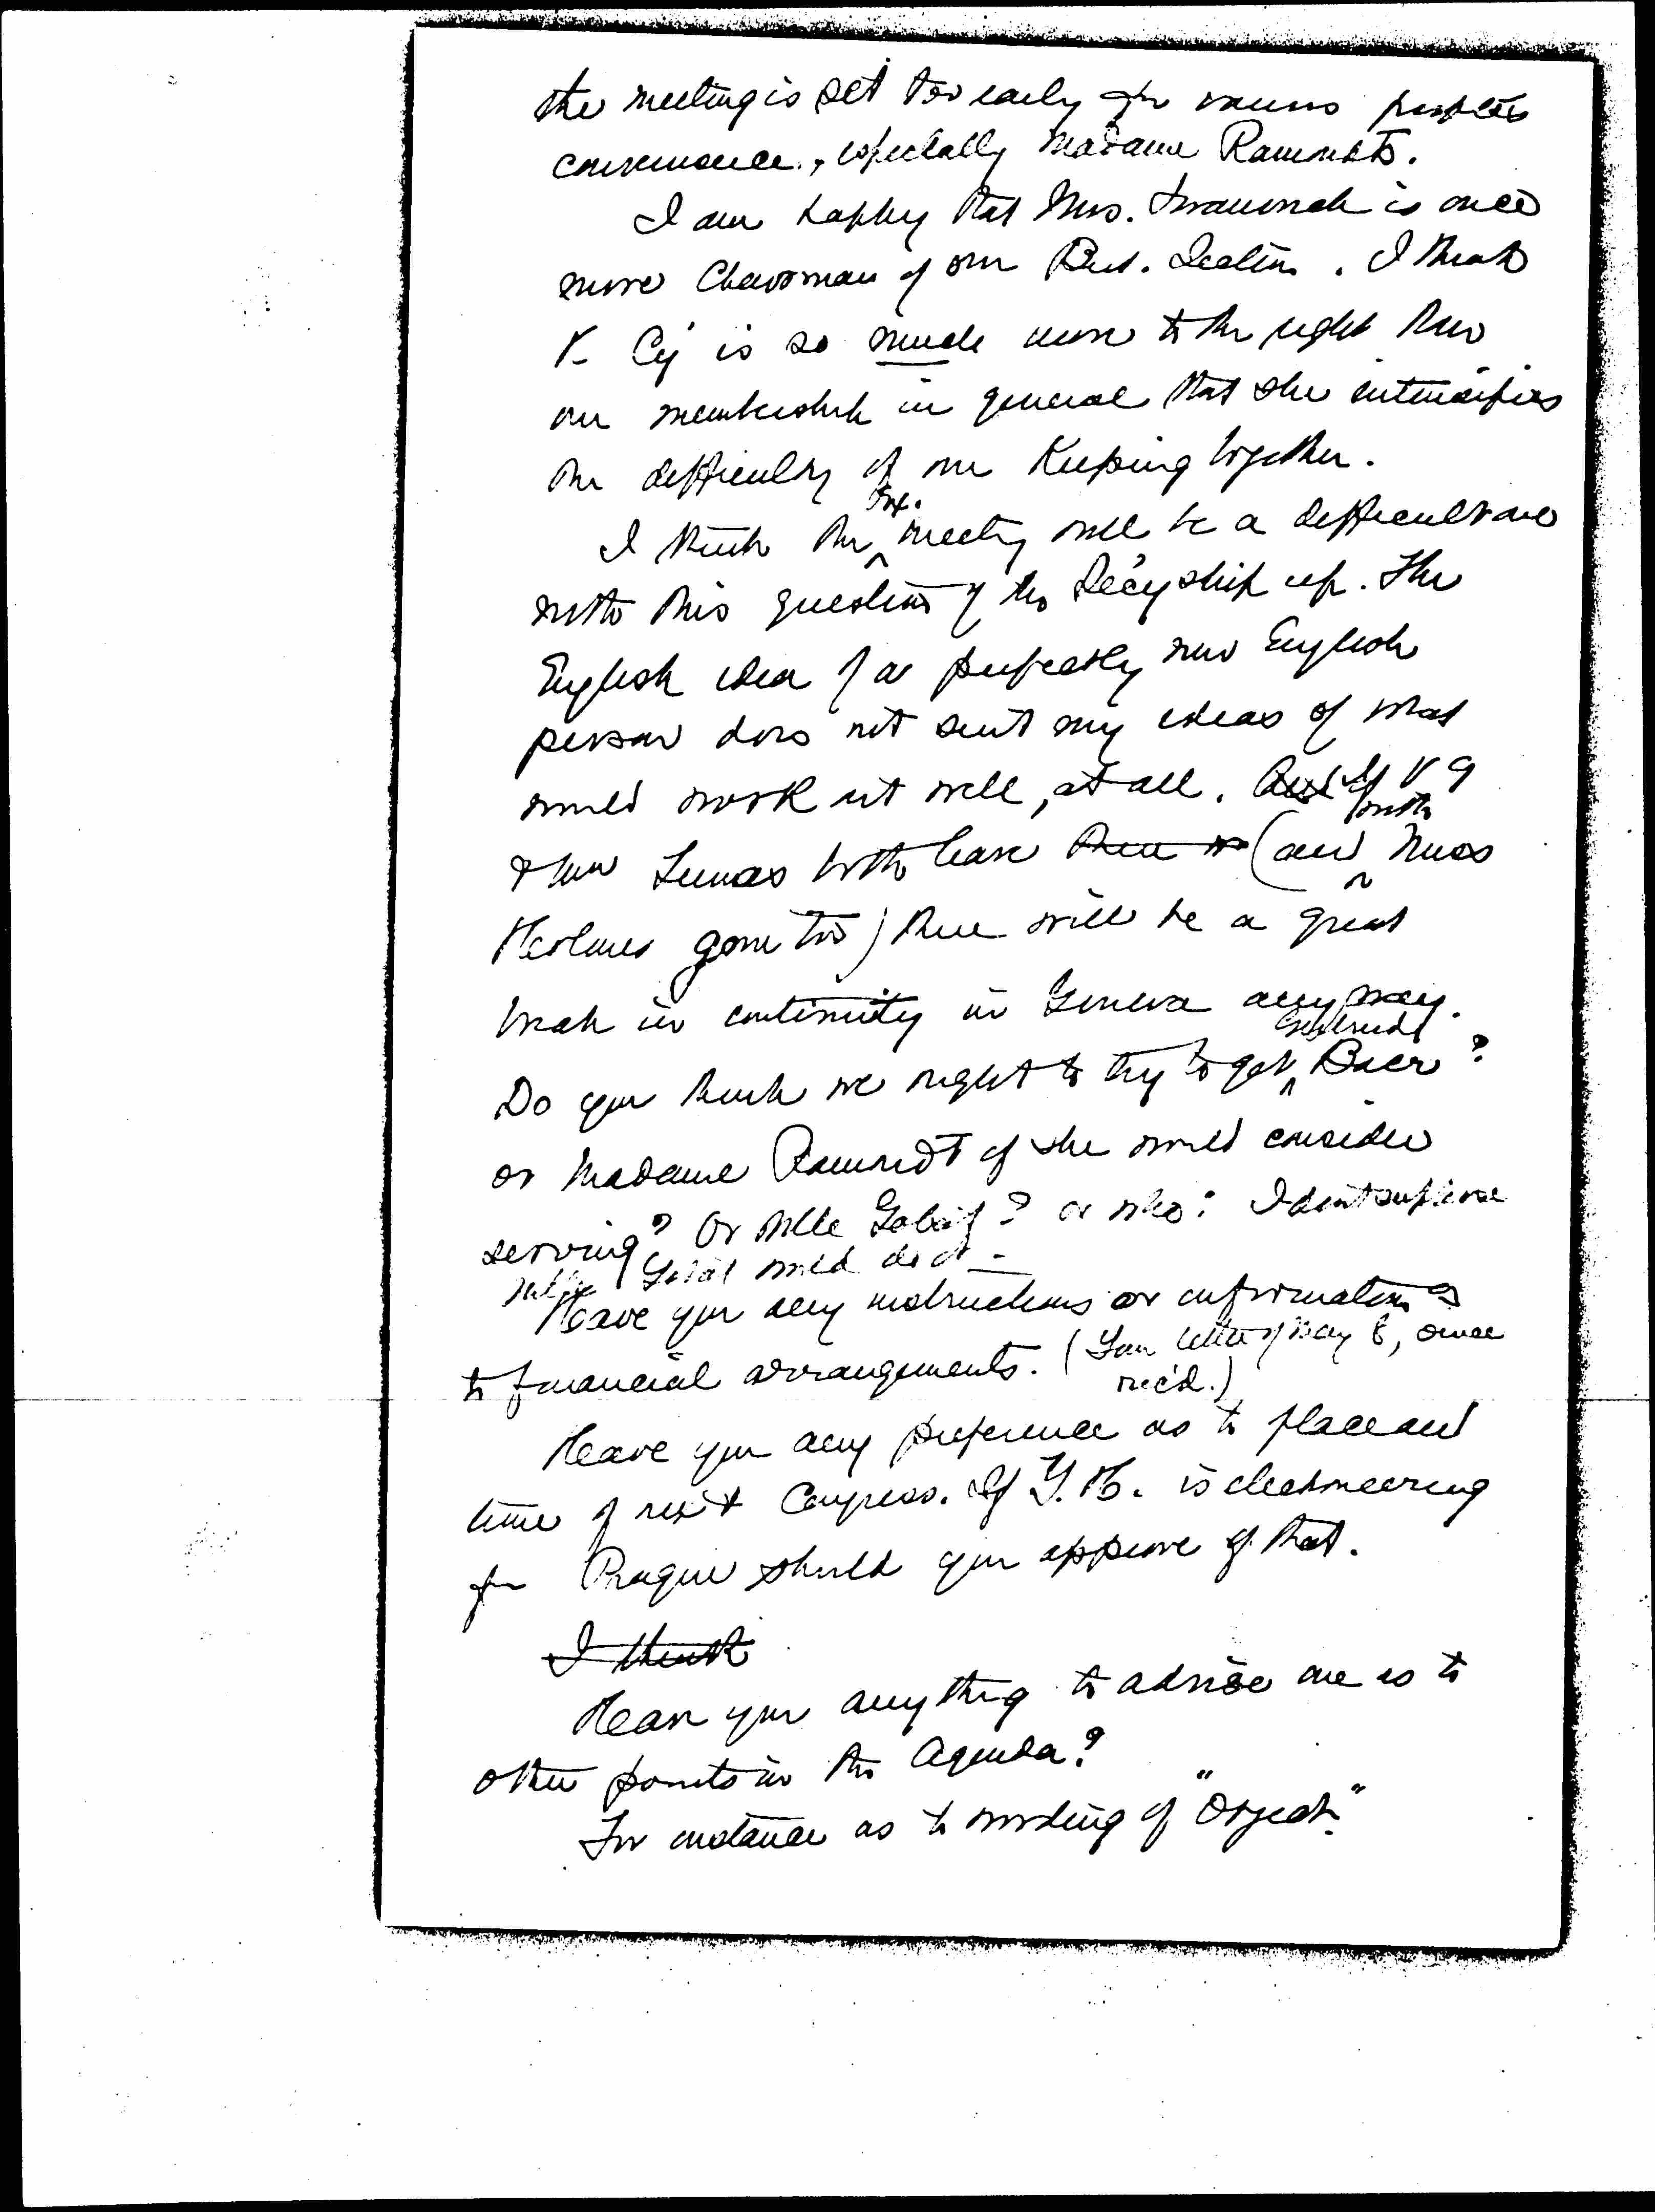 the meeting is set too early for various people's
convenience, especially Madame Ramondts.
I am happy that Mrs. is once
more Chairman of our Brit. Section. I think
K Cy is so much more to the right than
our membership in general that she intensifies
the difficulty of our keeping together.
I think the Ex. meeting will be a difficult one
with this question of the Sec'yship up. The
English idea of a perfectly new English
person does not suit my ideas of what
would work out well, at all. If V G
& Lucas both leave (and with Miss
Holmes gone too) there will be a great
break in continuity in Geneva anyway.
Do you think we ought to try to get Gertrude Baer?
or Madame Ramondt if she would consider
serving? Or Mlle Gobat? or who? I don't suppose
Mlle Gobat would do it –
Have you any instructions or information as
to financial arrangements. (Your letter of May 6, since
rec'd.)
Have you any preference as to place and
time of next Congress. If Y. H. is electioneering
for Prague should you approve of that.
I think
Have you anything to advise me as to
other points in the Agenda?
For instance as to wording of "Object."